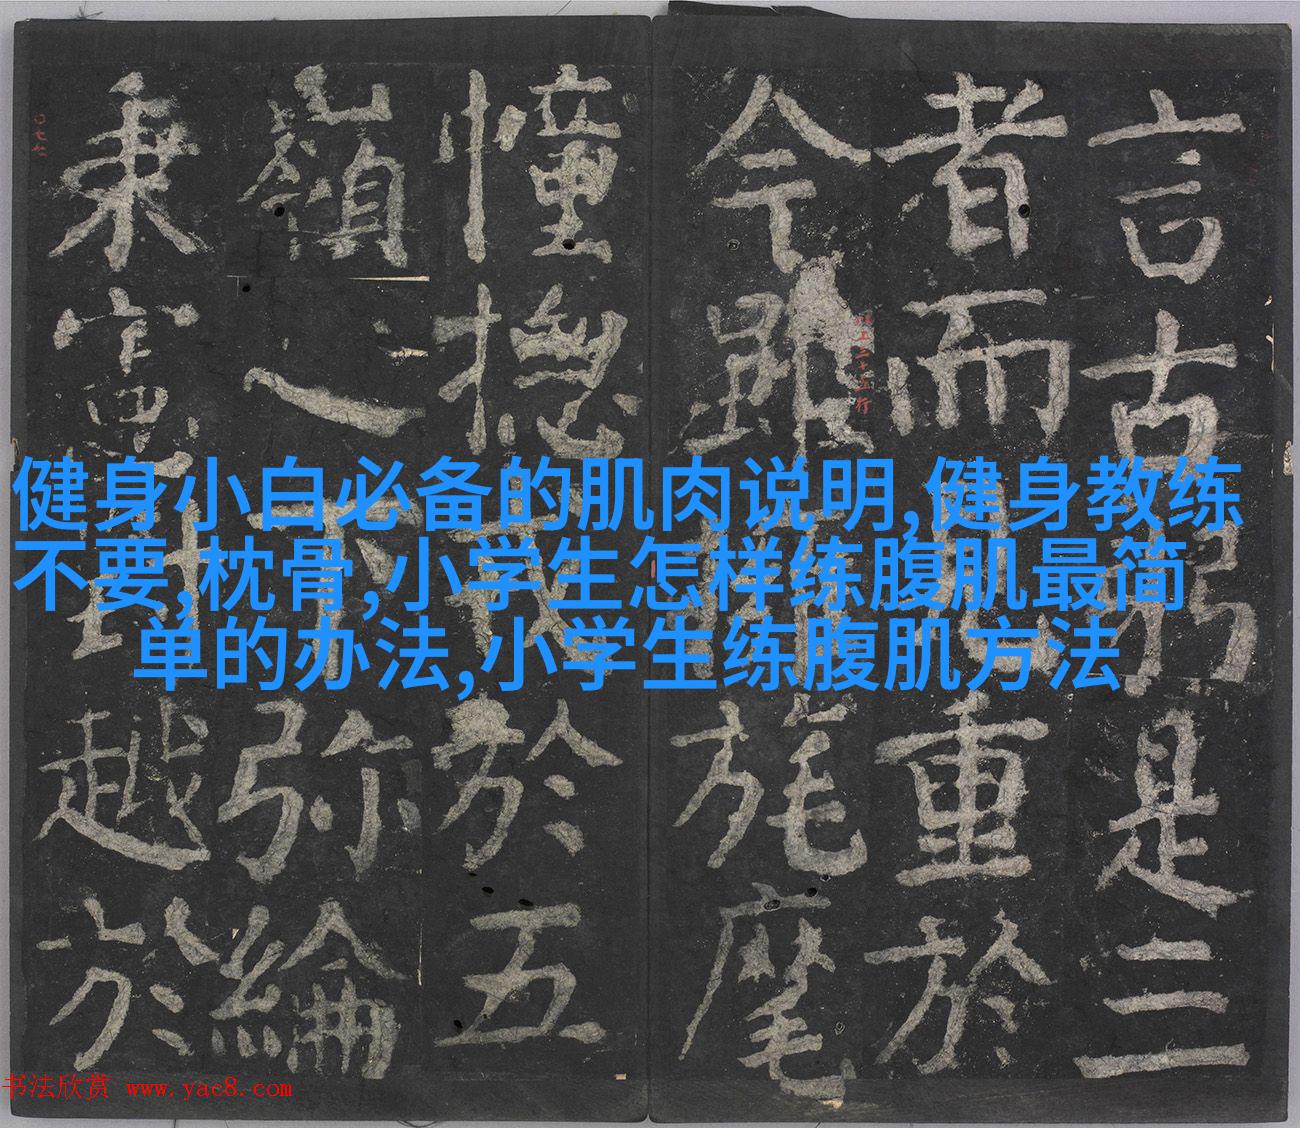 言古是三
者而重於
今雖旄麾
憧揔戎於五
嶺之下弥綸
秉憲越於
以上三十五行
健身小白必备的肌肉说明,健身教练
不要,枕骨,小学生怎样练腹肌最简
单的办法,小学生练腹肌方法
书法欣赏 www.yac8.com